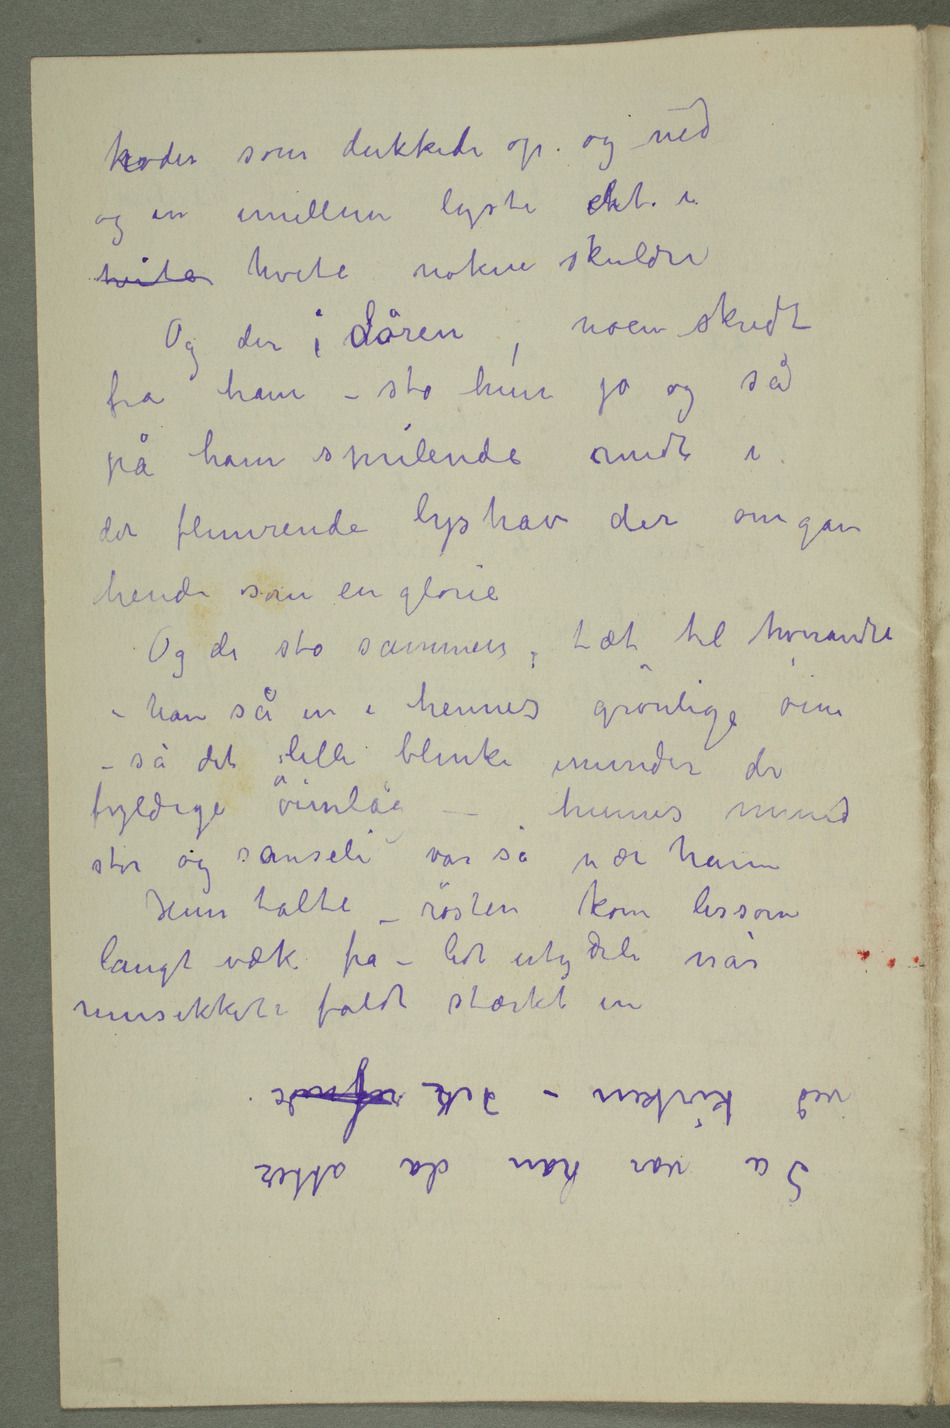 hoder som dukkede op og ned
og en imellem lyste det i
hvite hvite nokne skuldre
Og der i dören, noen skridt
fra ham – sto hun jo og så
på ham smilende midt i
det flimrende lyshav der omgav
hende som en glorie
Og de sto sammen, tæt til hverandre
– han så in i hennes grönlige öine
– så det lille blinke inunder de
fyldige öienlåg – hennes mund
stor og sanseli var så nær ham
Hun talte – rösten kom lissom
langt væk fra – lidt utydeli når
musikken faldt stærkt in
Så var han da atter
ved kirken – det